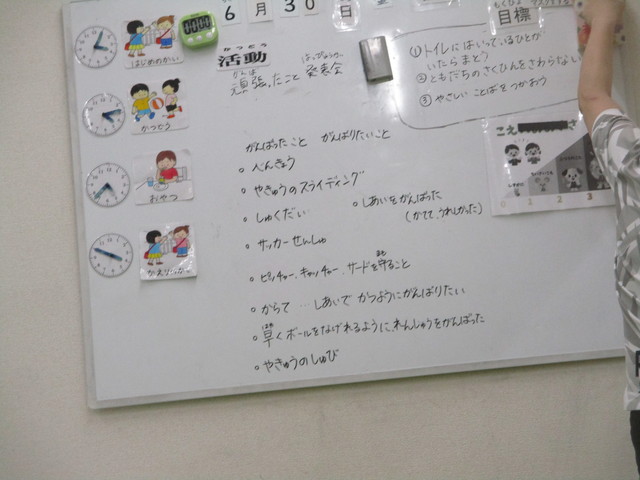 6月30日
はじめのかい
かつどう
活動
はっぴょうかい
頑張ったこと 発表会
もくひょう
目標
①トイレにはいっているひとが
いたらまとう
②ともだちのさくひんをさわらない
③やさしいことばをつかおう
かつどう
おやつ
かえりのかい
こえ
0 1 2 3
がんばったこと がんばりたいこと
べんきょう
やきゅうのスライディング
しゅくだい
しあいをがんばった
(かてて、うれしかった)
サッカーせんしゅ
ピッチャー、キャッチャー、サードを守ること
からて…しあいでかつようにがんばりたい
早くボールをなげれるように、れんしゅうをがんばった
やきゅうのしゅび